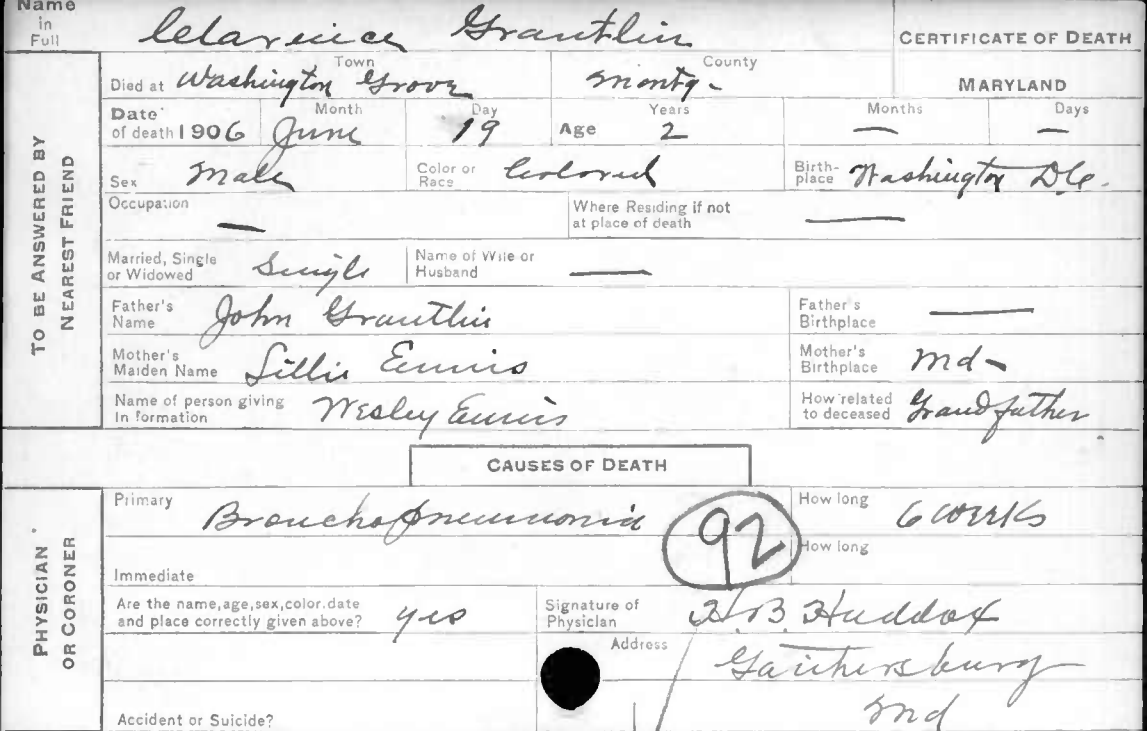 Name in Full Clarence Grantlin
CERTIFICATE OF DEATH
TO BE ANSWERED BY NEAREST FRIEND
Died at Washington Grove Town Montg- County MARYLAND
Date of death 1906 Month June Day 19 Age Years 2 Months — Days —
Sex Male Color or Race Colored Birthplace Washington DC.
Occupation — Where Residing if not at place of death —
Married, Single or Widowed Single Name of Wife or Husband —
Father's Name John Grantlin Father's Birthplace —
Mother's Maiden Name Lillie Ennis Mother's Birthplace Md-
Name of person giving In formation Wesley Ennis How related to deceased Grandfather
CAUSES OF DEATH
PHYSICIAN OR CORONER
Primary Bronchopneumonia 92 How long 6 weeks
Immediate How long
Are the name,age,sex,color.date and place correctly given above? yes Signature of Physician H.B. Haddox
Address Gaithersburg
Md
Accident or Suicide?